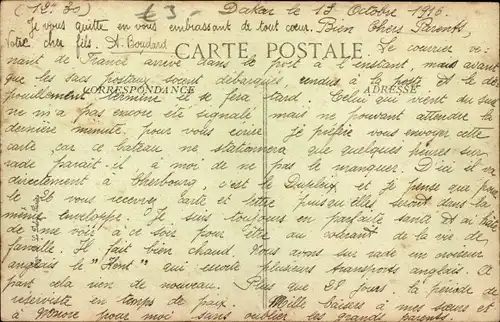 (12h 30) £ 3- Dakar le 13 Octobre 1916
Je vous quitte en vous embrassant de tout cœur. Bien Chers Parents,
Votre cher fils. A. Boudard
CARTE POSTALE
Le courrier ve-
nant de France arrive dans le port à l'instant, mais avant
que les sacs postaux soient débarqués, rendus à la poste et le dé-
pouillement terminé il se fera tard. Celui qui vient du sud
CORRESPONDANCE ADRESSE
ne m'a pas encore été signalé, mais ne pouvant attendre la
dernière minute, pour vous écrire, je préfère vous envoyer cette
carte, car ce bateau ne stationnera que quelques heures sur
rade paraît-il, à moi de ne pas le manquer. D'ici il va
directement à Cherbourg, c'est le Dupleix, et je pense que par
le vous recevrez carte et lettre puisqu'elles seront dans la
même enveloppe. Je suis toujours en parfaite santé et ai hâte
de me voir à ce soir pour être au courant de la vie de
famille. Il fait bien chaud. Nous avons sur rade un croiseur
anglais le "Kent" qui escorte plusieurs transports anglais. A
part cela rien de nouveau. Plus que 28 jours la période de
réserviste en temps de paix. Mille baisers à mes sœurs et
à pour moi sans oublier les grands parents.